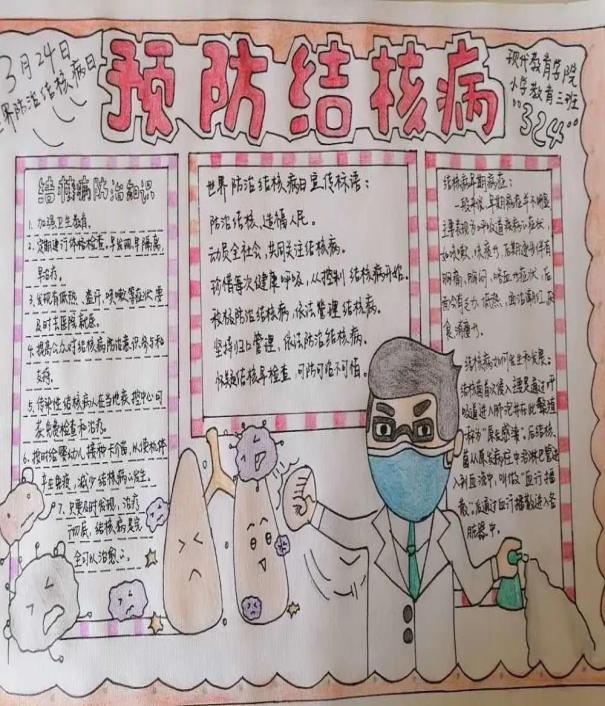 3月24日
世界防治结核病日
预防结核病
现代教育学院
小学教育三班
"324"
结核病防治知识
1. 加强卫生教育。
2. 定期进行体格检查,早发现,早隔离,
早治疗。
3. 发现有低热、盗汗、咳嗽等症状要
及时去医院就医。
4. 提高公众对结核病防治意识,参与和
支持。
5. 传染性结核病人在当地疾控中心可
免费检查和治疗。
6. 按时给婴幼儿接种卡介苗,以使机体
产生免疫,减少结核病的发生。
7. 只要及时发现,治疗
彻底,结核病是完
全可以治愈
世界防治结核病日宣传标语:
防治结核,造福人民。
动员全社会,共同关注结核病。
珍惜每次健康呼吸,从控制结核病开始。
积极防治结核病,依法管理结核病。
坚持归口管理,依法防治结核病。
怀疑结核早检查,可防可治不可怕。
结核病早期病症:
一般来说,早期病症并不明显
主要表现为呼吸道疾病的症状,
如咳嗽、咳痰
胸痛、胸闷
食、消瘦
结核病的发生和发展:
结核菌首次侵入
吸道进入肺泡并在此繁殖
称为"原发感染"。后结核
菌从原发病灶中沿淋巴管进
入到血液中,叫做"血行播
散",后通过血行播散进入各
脏器中。